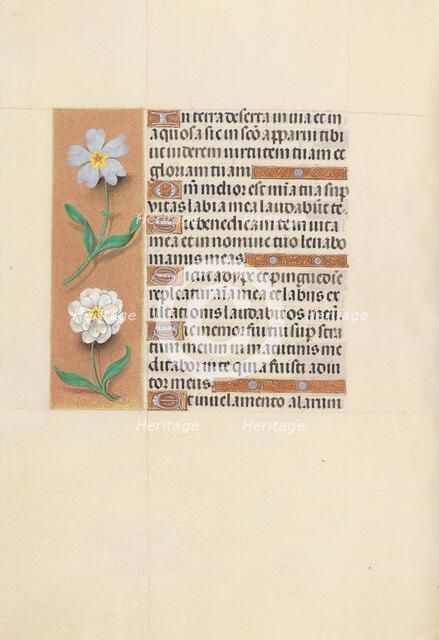 In terra deserta in via et in
aquosa sic in sc̄o apparui tibi
ut viderem virtutem tuam et
gloriam tuam
Qm̄ melior est mīa tua sup
vitas labia mea laudabūt te.
Sic benedicam te in vita
mea et in nomine tuo levabo
manus meas.
Sicut adype et pinguedīe
repleatur aīa mea et labiis ex
ultationis laudabit os meū.
Sic memor fui tui sup stra
tum meum in matutinis me
ditabor in te quia fuisti adiu
tor meus.
Et in velamento alarum
Heritage Heritage
Heritage Heritage